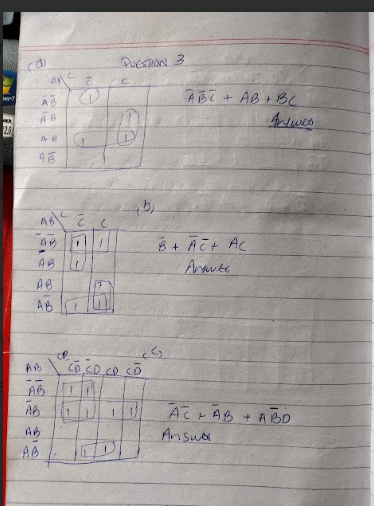 (a) QUESTION 3
AB C C̅ C
A̅B̅ 1
A̅B 1
AB 1 1
AB̅
A̅B̅C̅ + AB + BC
Answer
(b)
AB C C̅ C
A̅B̅ 1 1
A̅B 1
AB 1
AB̅ 1 1
B̅ + A̅C̅ + AC
Answer
(c)
AB CD C̅D̅ C̅D CD CD̅
A̅B̅ 1 1
A̅B 1 1 1 1
AB
AB̅ 1 1
A̅C̅ + A̅B + AB̅D
Answer